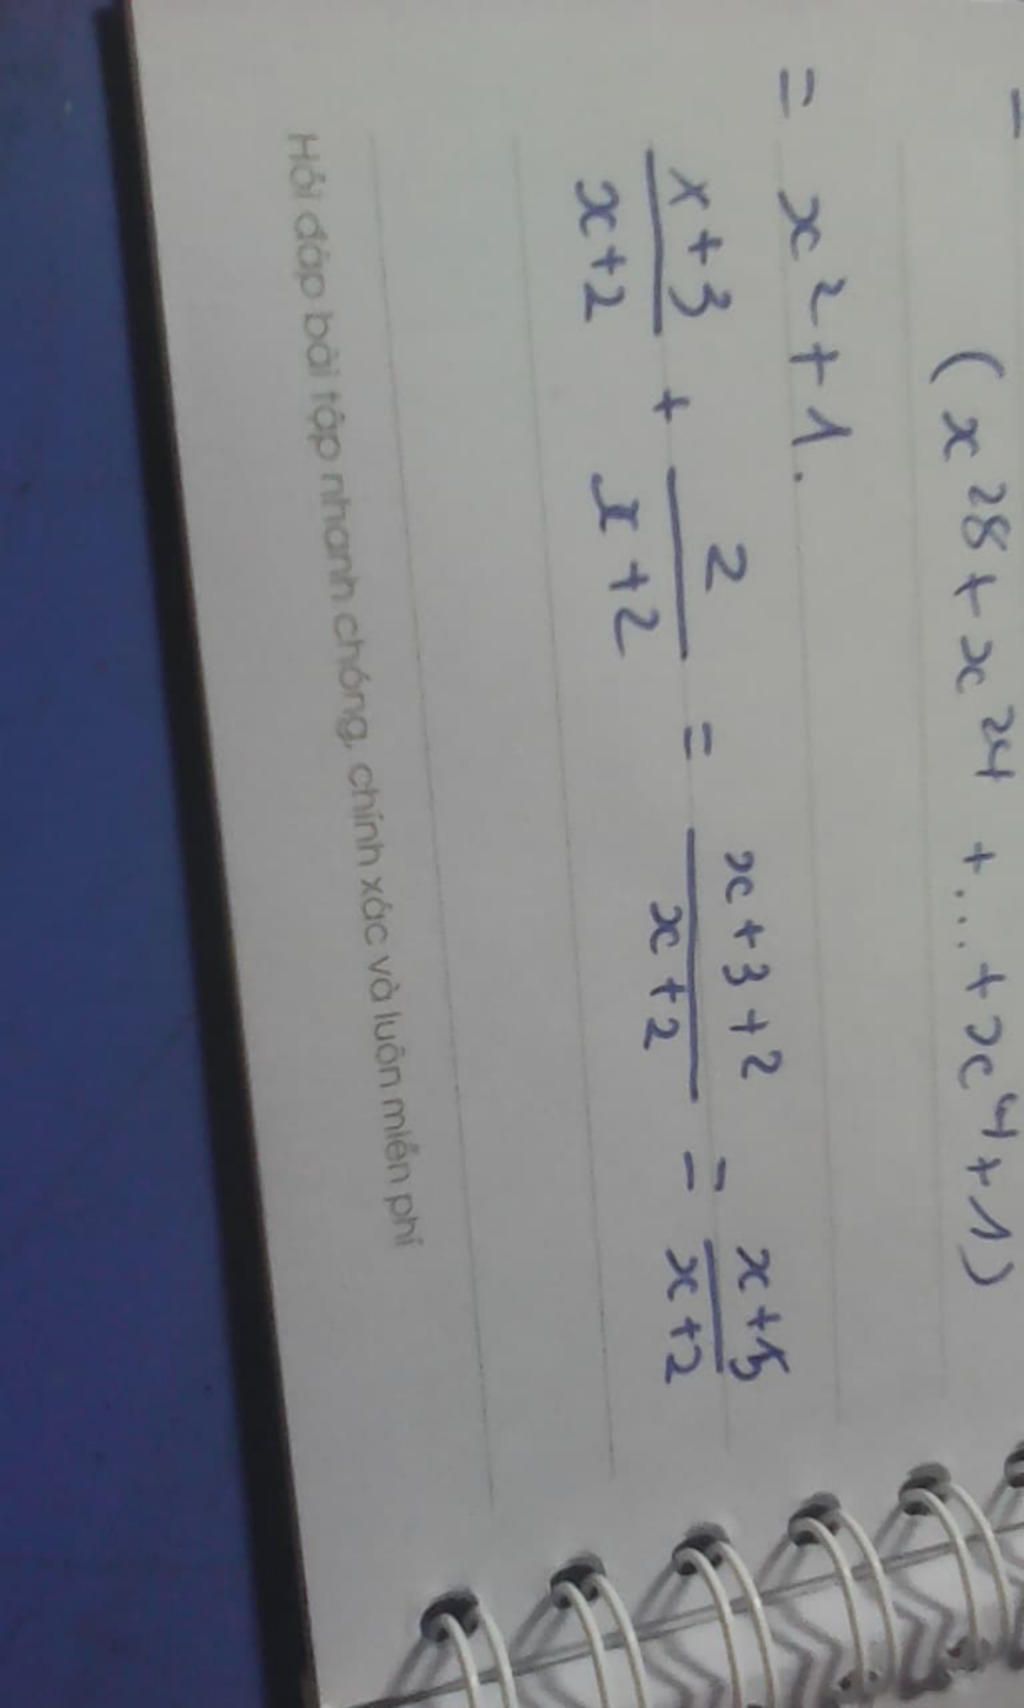 (x²⁸ + x²⁴ + ... + x⁴ + 1)
= x² + 1.
x + 3 / x + 2 + 2 / x + 2 = x + 3 + 2 / x + 2 = x + 5 / x + 2
Hỏi đáp bài tập nhanh chóng, chính xác và luôn miễn phí